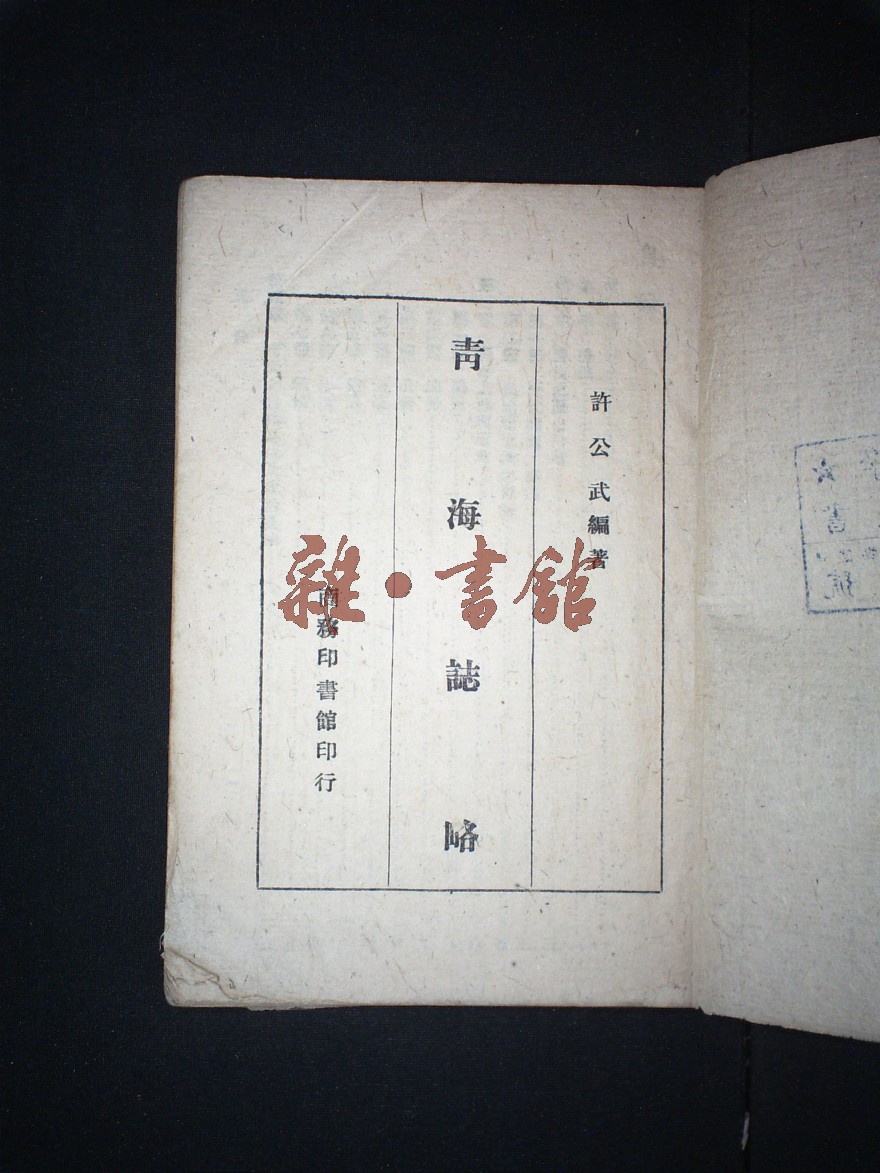 許公武編著
青海誌略
商務印書館印行
雜·書館